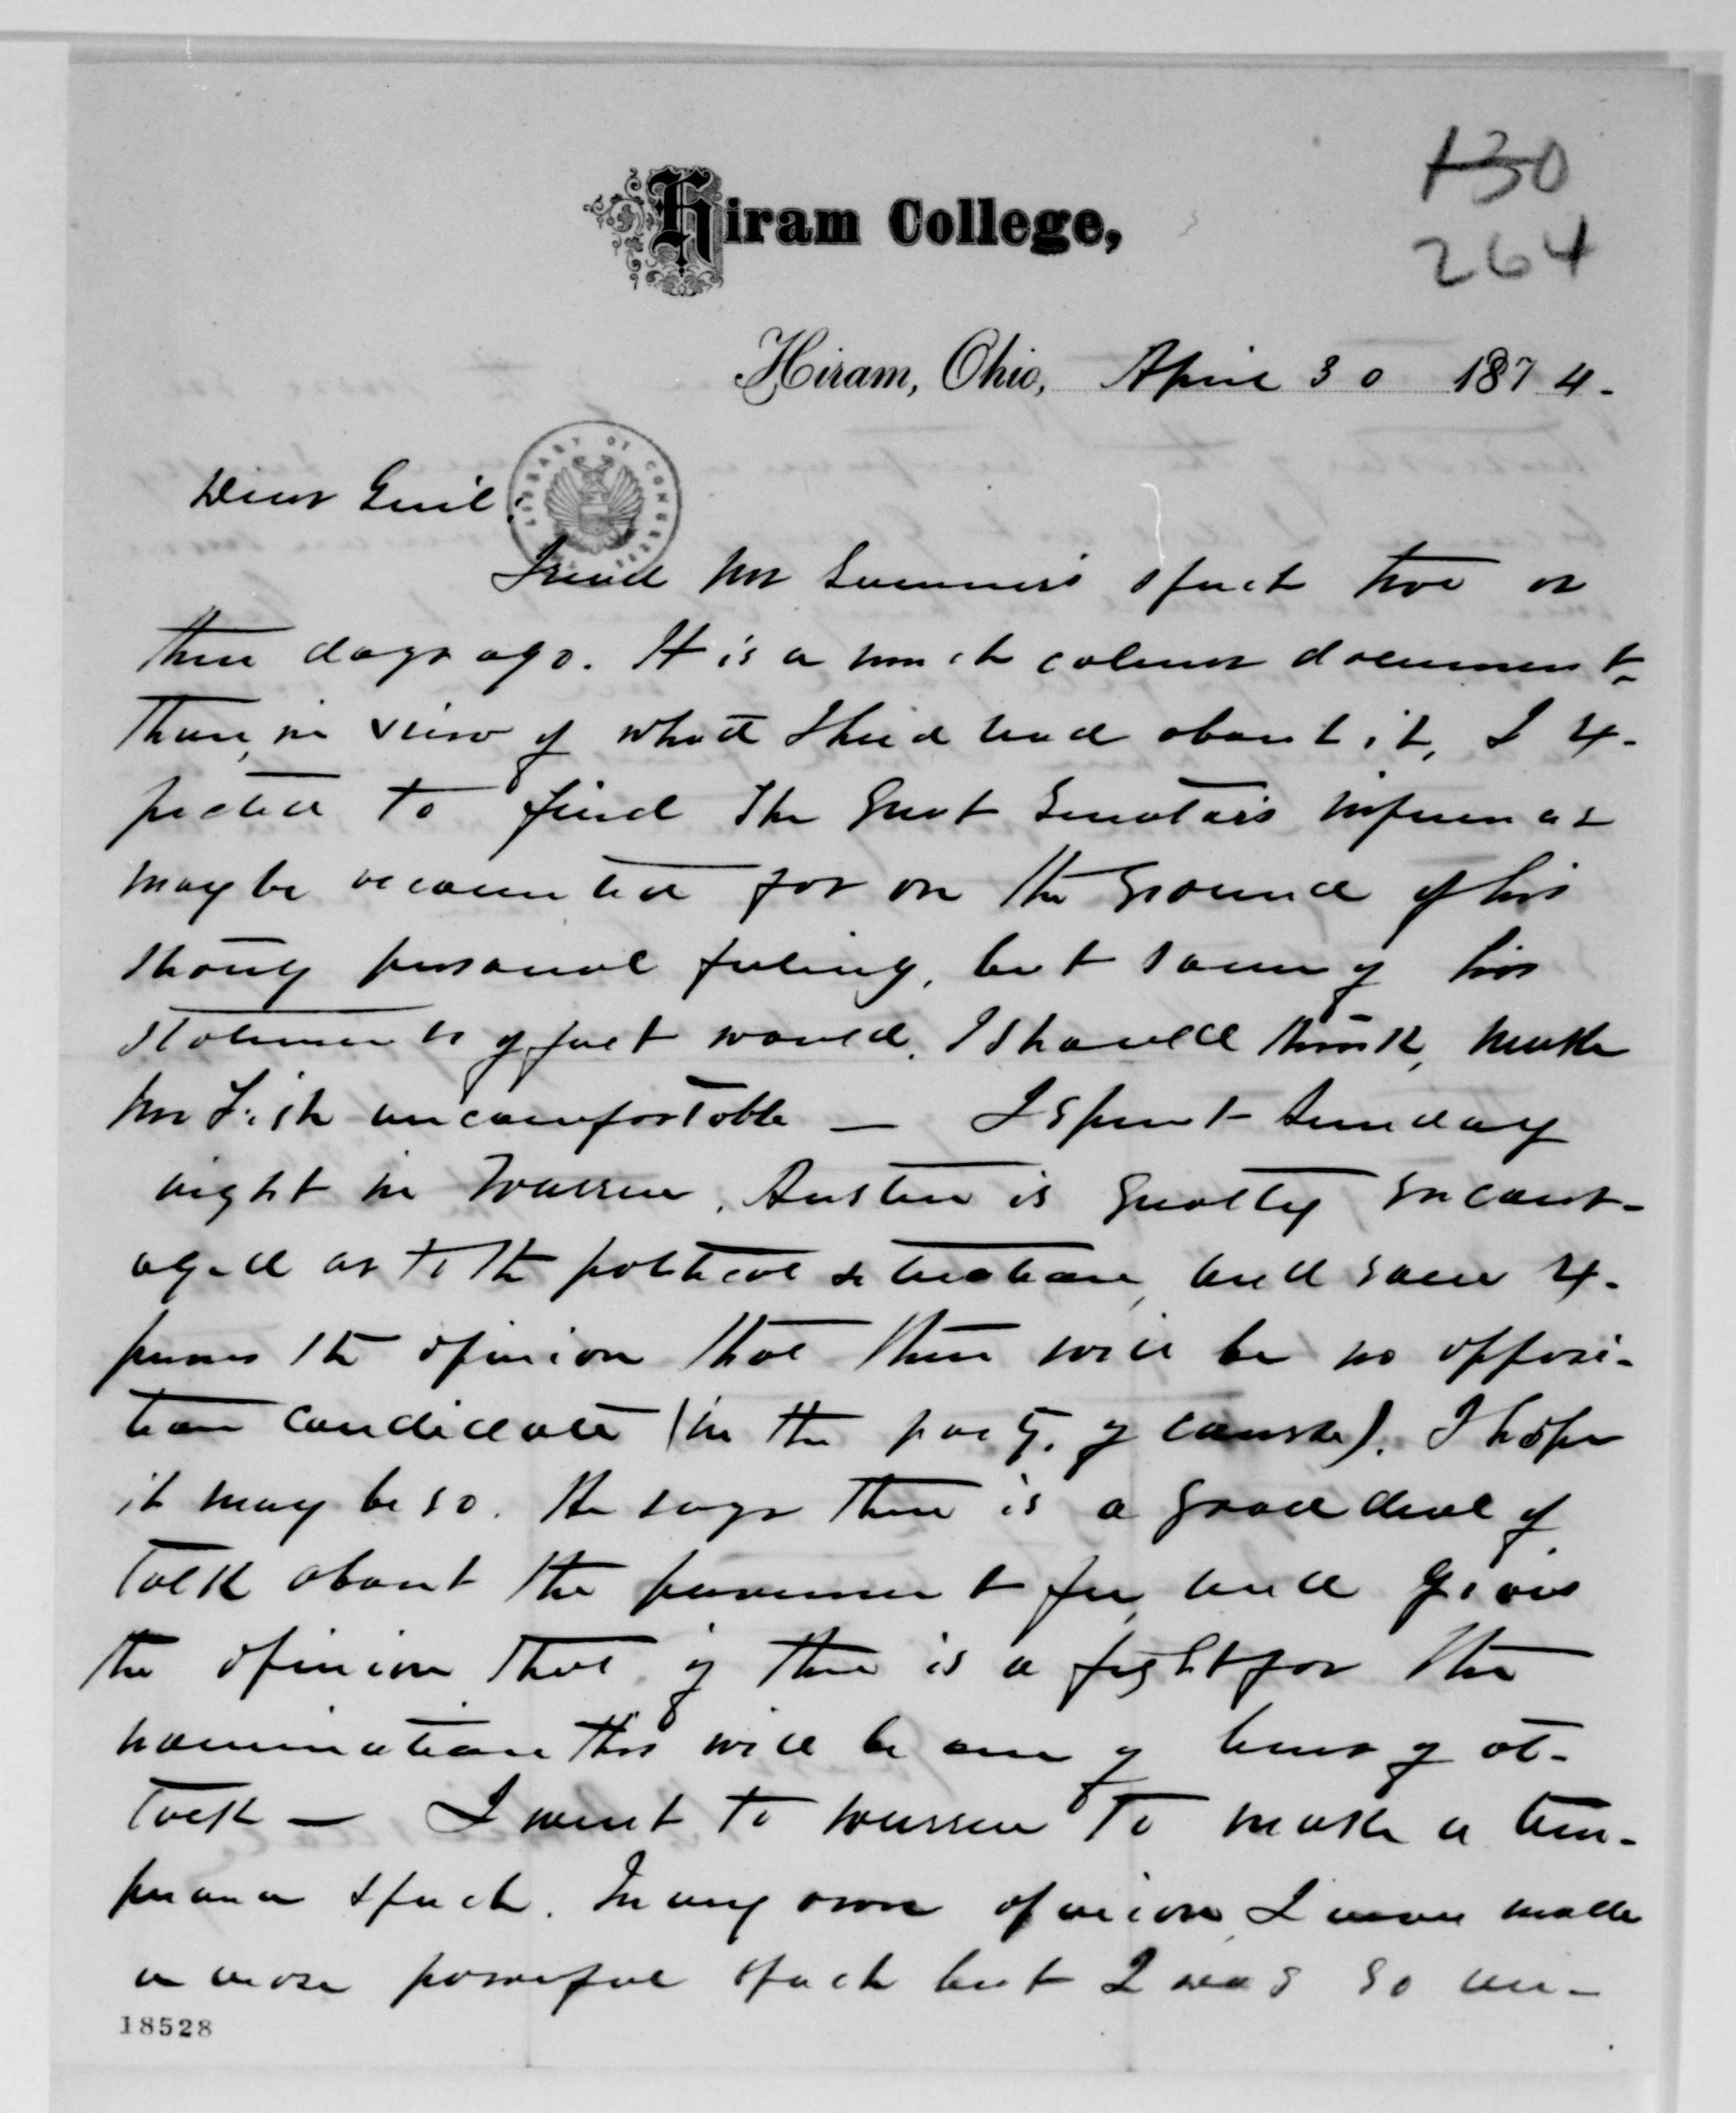 130
264
Hiram College,
Hiram, Ohio, April 30 1874.
LIBRARY OF CONGRESS
Dear Genl:
I read Mr Sumner's speech two or
three days ago. It is a much calmer document
than, in view of what I had read about it, I ex-
pected to find. The great Senator's inferences
may be accounted for on the ground of his
strong personal feeling, but some of his
statements of fact would, I should think, make
Mr Fish uncomfortable — I spent Sunday
night in Warren. Austin is greatly encour-
aged as to the political situation, and some ex-
presses the opinion that there will be no opposi-
tion candidate (in the party, of course). I hope
it may be so. He says there is a good deal of
talk about the pavement fee, and gives
the opinion that if there is a fight for the
nomination this will be one of lines of at-
tack — I went to Warren to make a tem-
perance speech. In my own opinion, I never made
a more powerful speech but I was so un-
18528